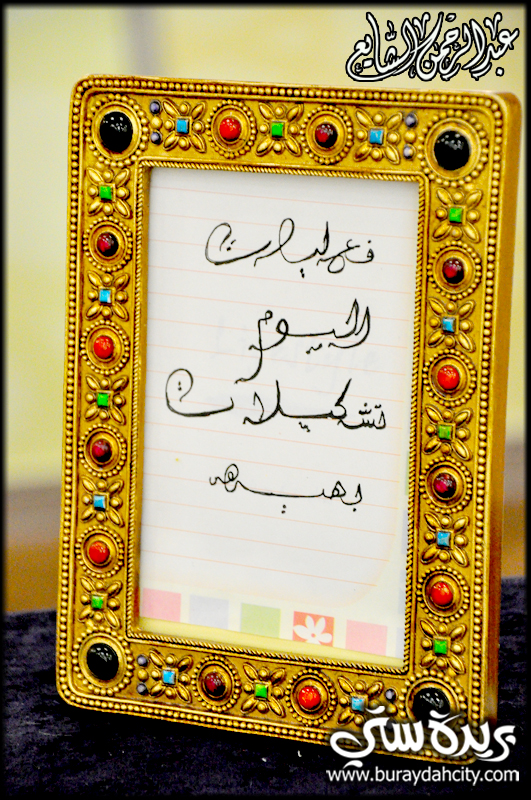 عبدالرحمن الشايع
فعاليات
اليوم
تشكيلات
بريدة ستي
www.buraydahcity.com